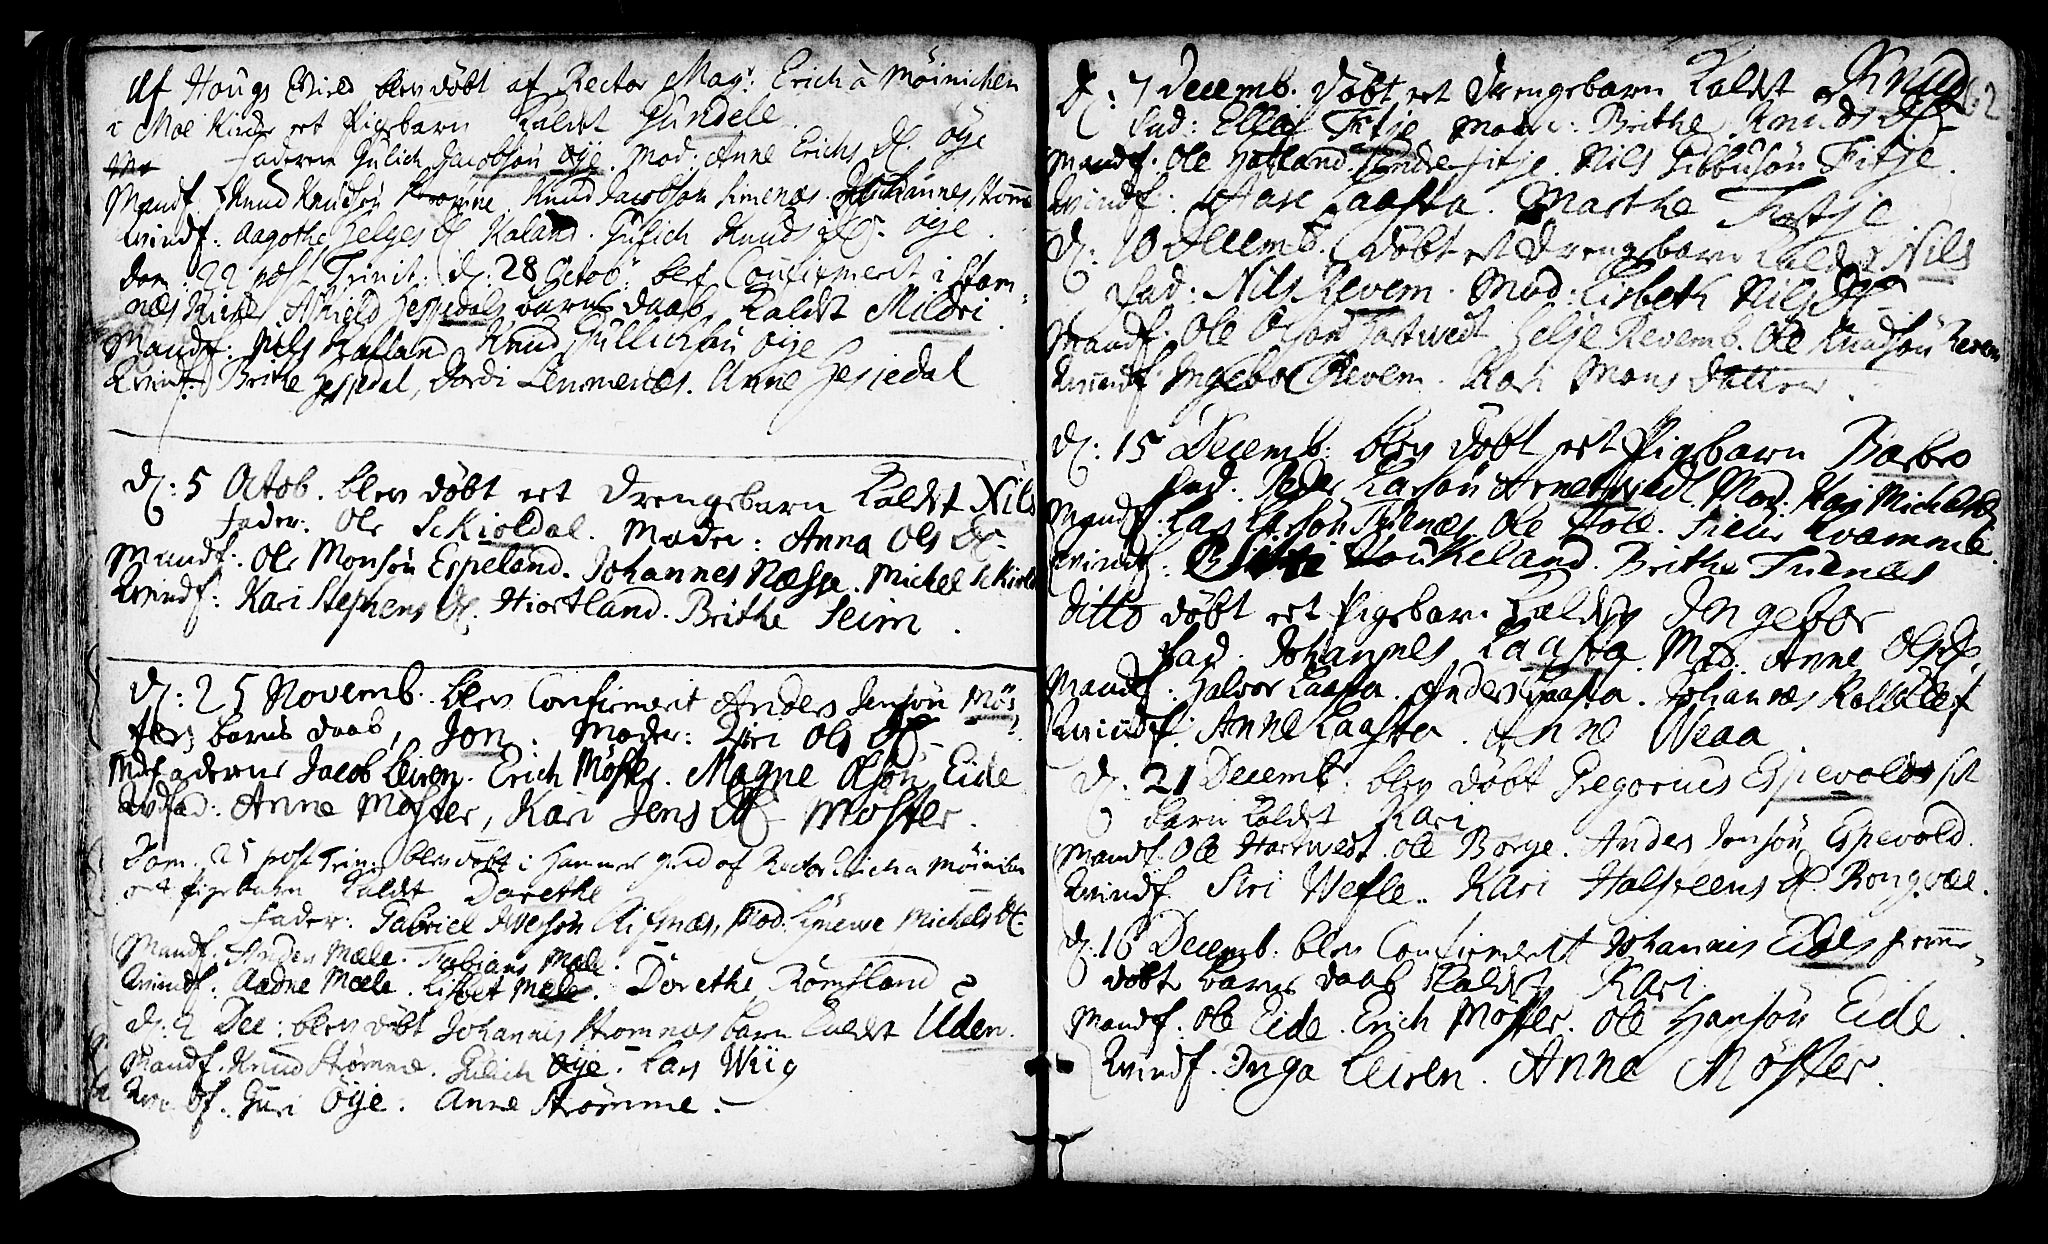 Af Hougs blev döbt af Rector Mag: Erich à Möinichen
i Moe Kirke et Pigebarn kaldet Gundele
Faderen Gulich Jacobsön öÿe. Mod: Anne Erichs D. öÿe
Mandf. Knud Knudsön Knud Jacobsön Simenæs. Johannes Strömme
Kvindf: Aagothe Helges D Kaland. Gulich Knuds D. öÿe.
Dom: 22 post Trinit: D: 28 Octob: blef Confirmeret i Stam-
næs Kirke Askield Hesjedals barns daab, kaldet Mildri
Mandf: Nils Kalland Knud Gullichsön öÿe
Kvindf: Brithe Hesjedal, Dordi Lemmenæs. Anne Hesjedal
D: 5 Octob. blev döbt et Drengebarn kaldet Nils
Fader: Ole Skioldal. Moder: Anna Ols D.
Mandf. Ole Monsön Espeland. Johannes Næsse. Michel Skiold
Kvindf: Kari Stephens D. Hiortland. Brithe Seim.
D: 25 Novemb. blev Confirmerit Anders Jensön Mös-
ters barns daab, Jon. Moder: Ols D.
Mdfaderne Jacob Leiren. Erich Möster. Magne Olsön Eide
Kvdfad: Anne Möster, Kari Jens D Möster.
Dom. 25 post Trin: blev döbt i Hammer af Rector Erich a Möinichen
et Pigebarn kaldet Dorethe
Fader: Gabriel Iversön Eisnæs, Mod: Michels D.
Mandf. Anders Mæle. Fabians Mæle.
Kvindf: Aadne Mæle. Lisbet Mæle. Dorethe Römsland
D: 2 Dec: blev döbt Johannes Strömnæs barn kaldet Uden.
Mandf. Knud Strömme. Gulich öÿe. Lars Wiig
Kvindf. Guri öÿe. Anne Strömme.
D: 7 Decemb. döbt et Drengebarn kaldet Knud 62
Fad: Ellef Fitje Moder: Brithe Knuds D.
Mandf. Ole Hatland. Fitje. Nils Sibbusön Fitje.
Kvindf: Aase Laasta. Marthe Fitje
D: 10 Decemb. döbt et Drengebarn kaldet Nils
Fad: Nils Revem. Mod: Lisbeth Nils D.
Mandf. Ole Olsön Hartvedt Helje Revem. Ole Knudsön Revem
Kvindf Ingebor Revem. Kari Mons Datter.
D: 15 Decemb: blev döbt et Pigebarn Barbro
Fad. Peder Larsön Arnetvedt. Mod: Kari Michels D
Mandf: Lars Larsön Tunæs Ole Kvamme.
Kvindf: Houkeland. Brithe Tunæs
Ditto döbt et Pigebarn kaldet Ingebor
Fad. Johannes Laasta. Mod: Anne Ols D.
Mandf: Halvor Laasta. Anders Laasta. Johannes Kalleklef
Kvindf: Anne Laasta. Anne Weaa.
D. 21 Decemb: blev döbt Gregorius Espevolds sit
barn kaldet Kari
Mandf: Ole Hartvedt. Ole Börge. Anders Jonsön Espevold.
Kvindf Siri Wefle. Kari Halsteens D Bongvæl.
D. 16 Decemb: blev Confirmerett Johannis Eides hiemme-
döbte barns daab kaldet Kari
Mandf: Ole Eide. Erich Möster. Ole Hansön Eide.
Kvindf. Inga Leiren. Anne Möster.